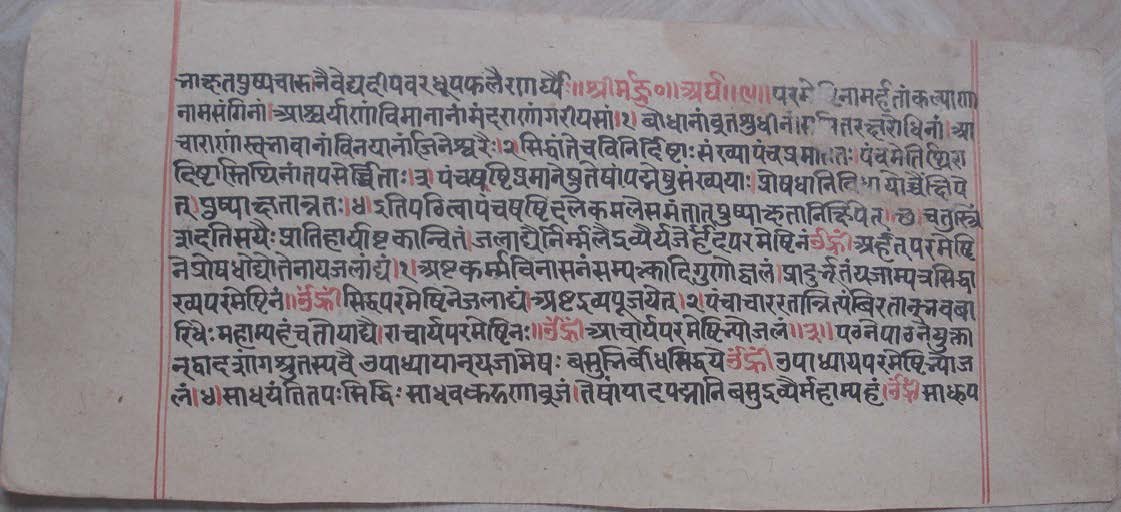 न्नाक्षतपुष्पचारुनैवेद्यदीपवरधूपफलैरणार्घ्यैः॥श्रीमर्द्दु०॥अर्घं॥९॥परमे नामर्हतांकल्याणा
नामसंगिनां।आश्चर्याणांविमानानांमंदराणांगरीयसां।१।बोधानांवृतशुधीनं। तरक्षरोधिनां।आ
चाराणांस्वनावानांविनयानांजिनेश्वरैः।२सिद्धांतेचविनिर्दिष्टाःसंख्यापंचप्रमा ततः।पंचमेतिथिरा
दिष्टास्तिथिनांतपसेर्च्चिताः।३पंचषष्टिप्रमानेषुतेषांपद्मेषुसंख्ययाः।प्रोषधानिविधायोच्चैःक्षिपे
त्पुष्पाक्षतान्नतः।४।इतिपठित्वापंचषष्टिदलकमलेसमंतात्पुष्पाक्षतानिक्षिपेत्।छ।चतुस्त्रिं
शदतिसयैःप्रातिहार्याष्टकान्वितं।जलाद्यैर्निर्म्मलैर्द्रव्यैर्यजेर्हदपरमेष्टिनंॐह्रीं।अर्हत्परमेष्टि
नेप्रोषधोद्योतनायजलाद्यं।१।अष्टकर्म्मविनासनंसम्यत्क्वादिगुणोद्वलं।प्रादुर्भूतंयजाम्पत्रसिद्धा
ख्यपरमेष्टिनं॥ॐह्रींसिद्धपरमेष्टिनेजलाद्यं।अष्टद्रव्यपूजयेत्।२।पंचाचाररतान्नित्यं
रिधैःमहाम्पहंचतोयाद्यैराचार्यपरमेष्टिनः॥ॐह्रीं।आचार्यपरमेष्टिन्योजलं॥३।पठनेपाठनेयुक्ता
न्द्वादशांगश्रुतस्यवैउपाध्यायान्यजामेषःबसुन्निर्बोधसिद्धयेॐह्रींउपाध्यायपरमेष्टिन्योज
लं।४।साधयंतितपःसिद्धिःसाधव तेषांपादपद्मानिबसुद्रव्यैर्महाम्पहं।ॐह्रींसाधुप